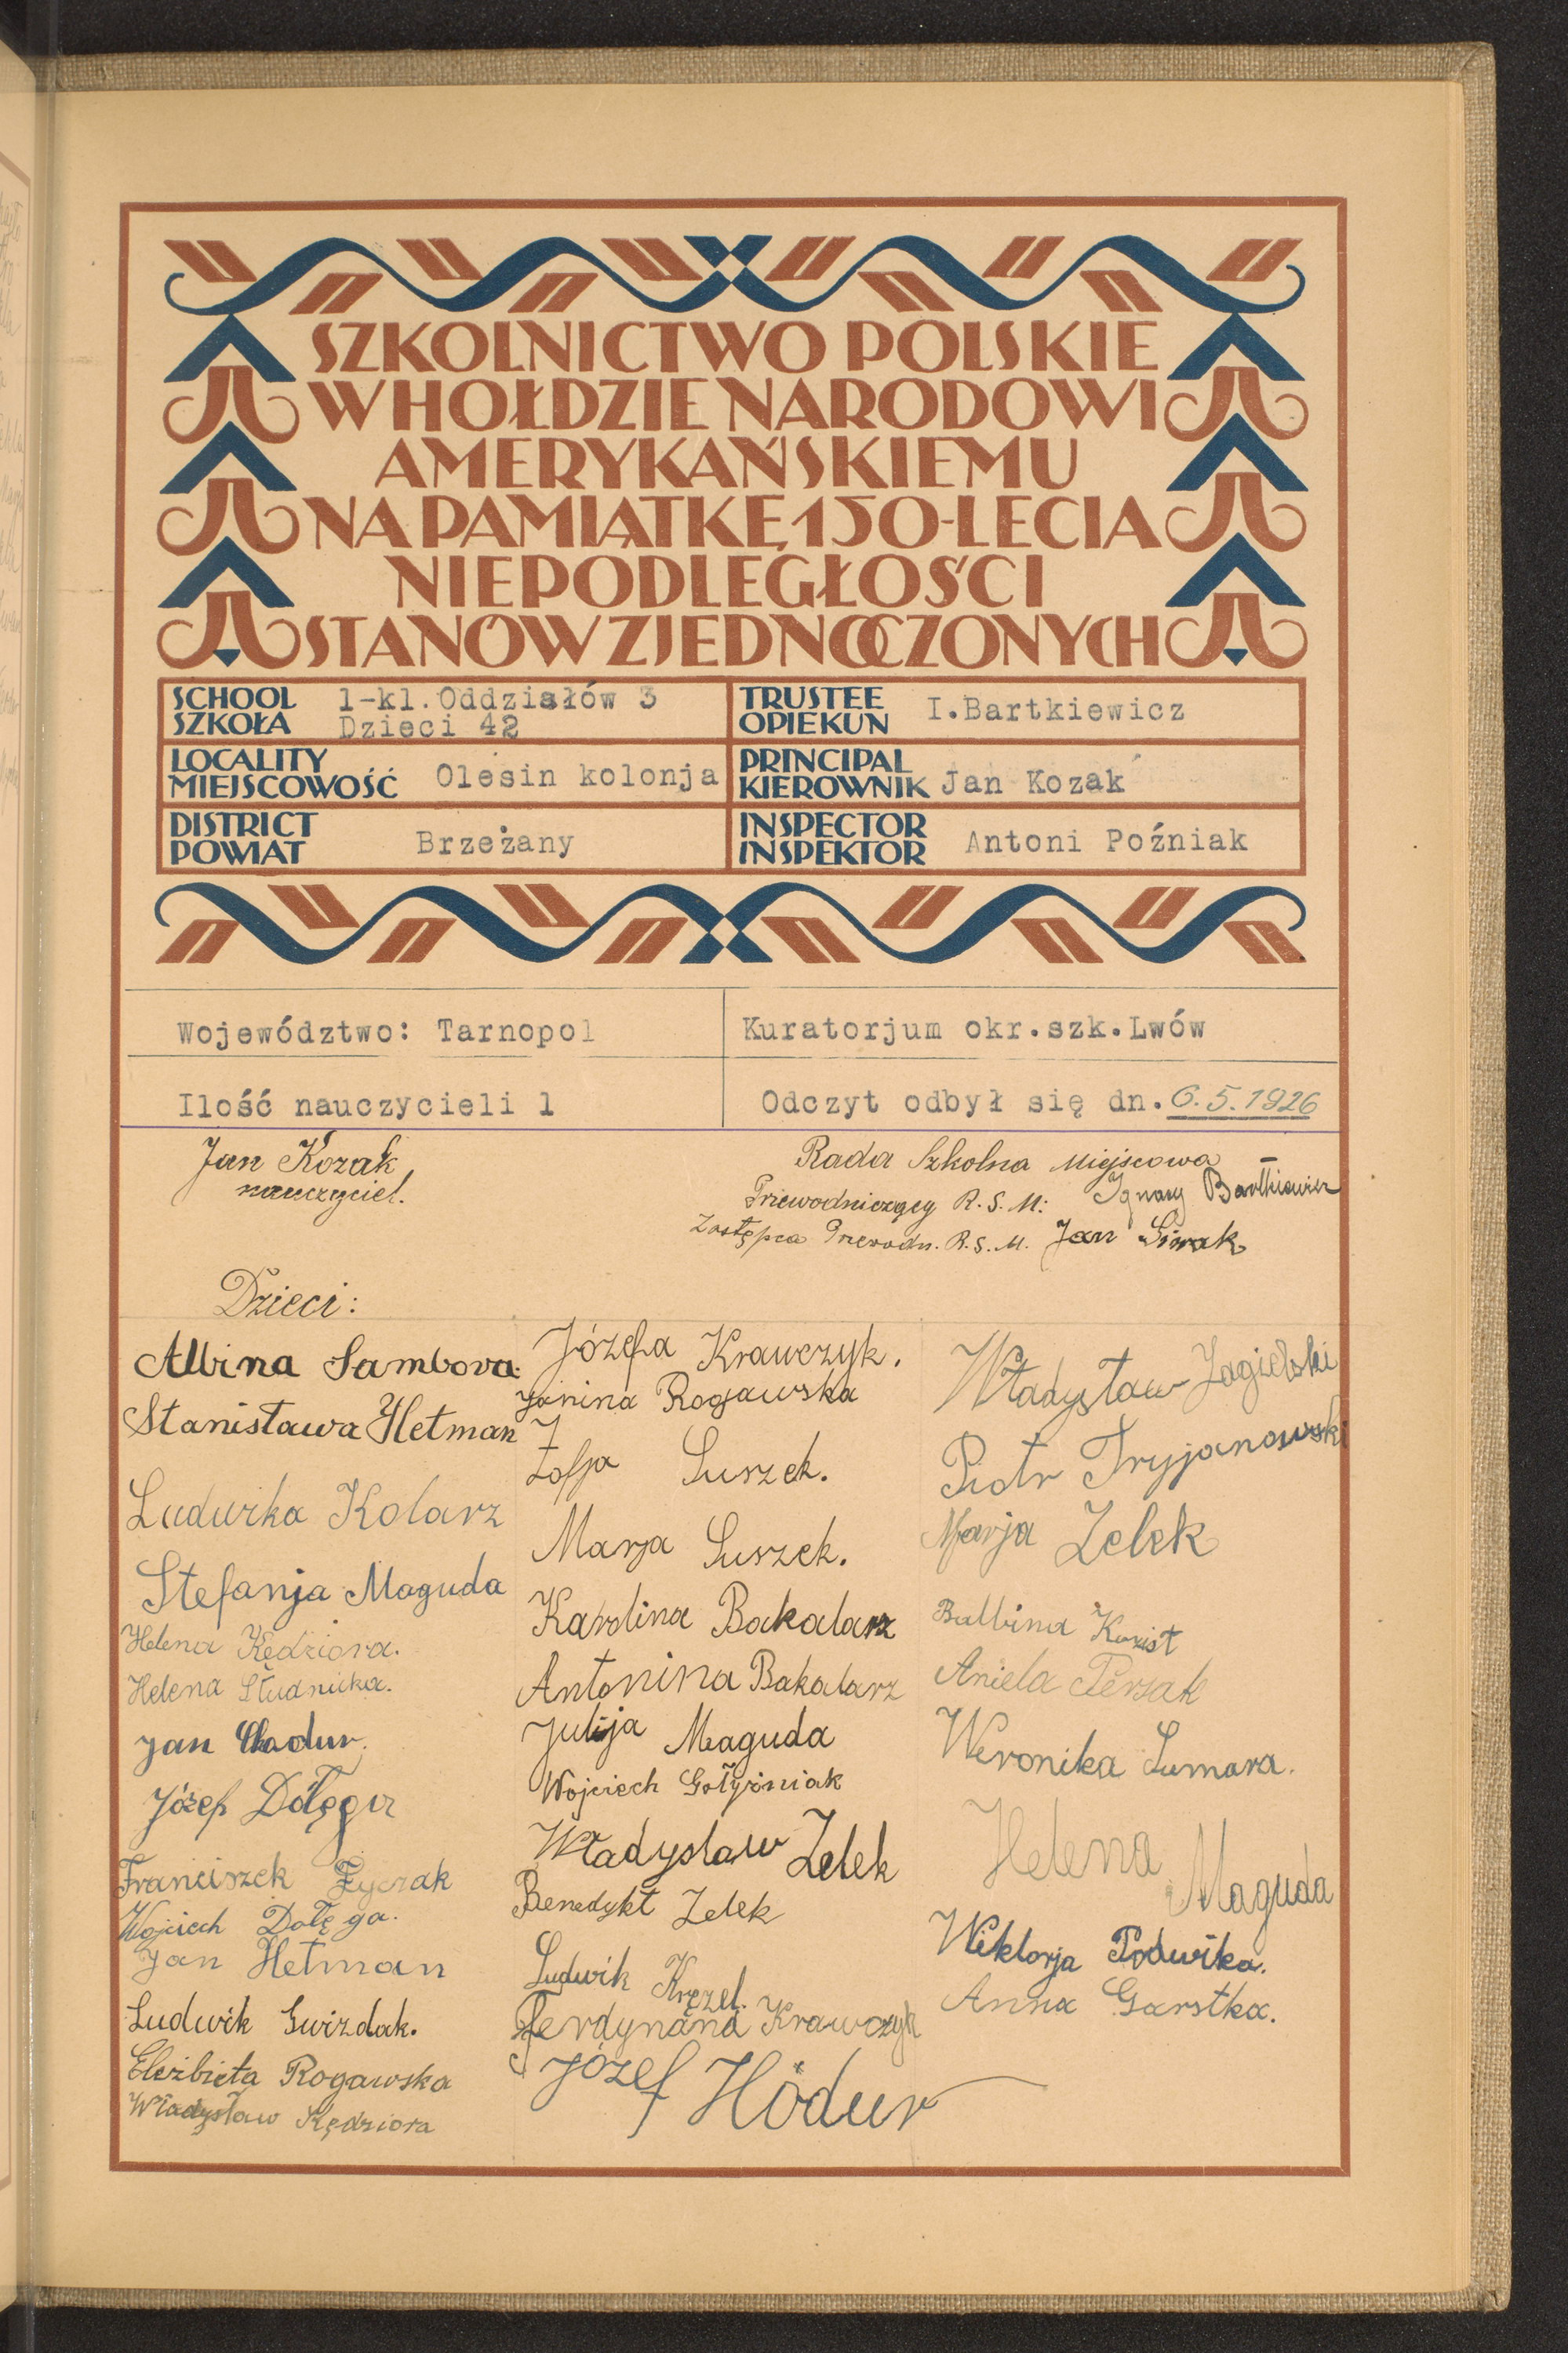 SZKOLNICTWO POLSKIE
W HOŁDZIE NARODOWI
AMERYKAŃSKIEMU
NA PAMIĄTKĘ 150-LECIA
NIEPODLEGŁOŚCI
STANÓW ZJEDNOCZONYCH
SCHOOL
SZKOŁA
1-kl. Oddziałów 3
Dzieci 42
TRUSTEE
OPIEKUN
I.Bartkiewicz
LOCALITY
MIEJSCOWOŚĆ
Olesin kolonja
PRINCIPAL
KIEROWNIK
Jan Kozak
DISTRICT
POWIAT
Brzeżany
INSPECTOR
INSPEKTOR
Antoni Poźniak
Województwo: Tarnopol
Kuratorjum okr.szk.Lwów
Ilość nauczycieli 1
Odczyt odbył się dn. 6.5.1926
Jan Kozak
nauczyciel.
Rada Szkolna Miejscowa
Przewodniczący R.S.M: Ignacy Bartkiewicz
Zastępca Przewodn. R.S.M. Jan Siwak
Dzieci:
Albina Sambora.
Stanisława Hetman
Ludwika Kolarz
Stefanja Maguda
Helena Kędziora.
Helena Studnicka.
Jan
Józef Dołęga
Franciszek
Wojciech Dołęga.
Jan Hetman
Ludwik Gwizdak.
Elżbieta Rogawska
Władysław Kędziora
Józefa Krawczyk.
Janina Rogawska
Zofja Suszek.
Marja Suszek.
Karolina Bakalarz
Antonina Bakalarz
Julija Maguda
Wojciech
Władysław Zelek
Benedykt Zelek
Ludwik Kręzel.
Ferdynand Krawczyk
Józef Hodur
Władysław Jagielski
Piotr Tryjanowski
Marja Zelek
Balbina
Aniela Persak
Weronika Sumara.
Helena Maguda
Wiktorja Podwika.
Anna Garstka.